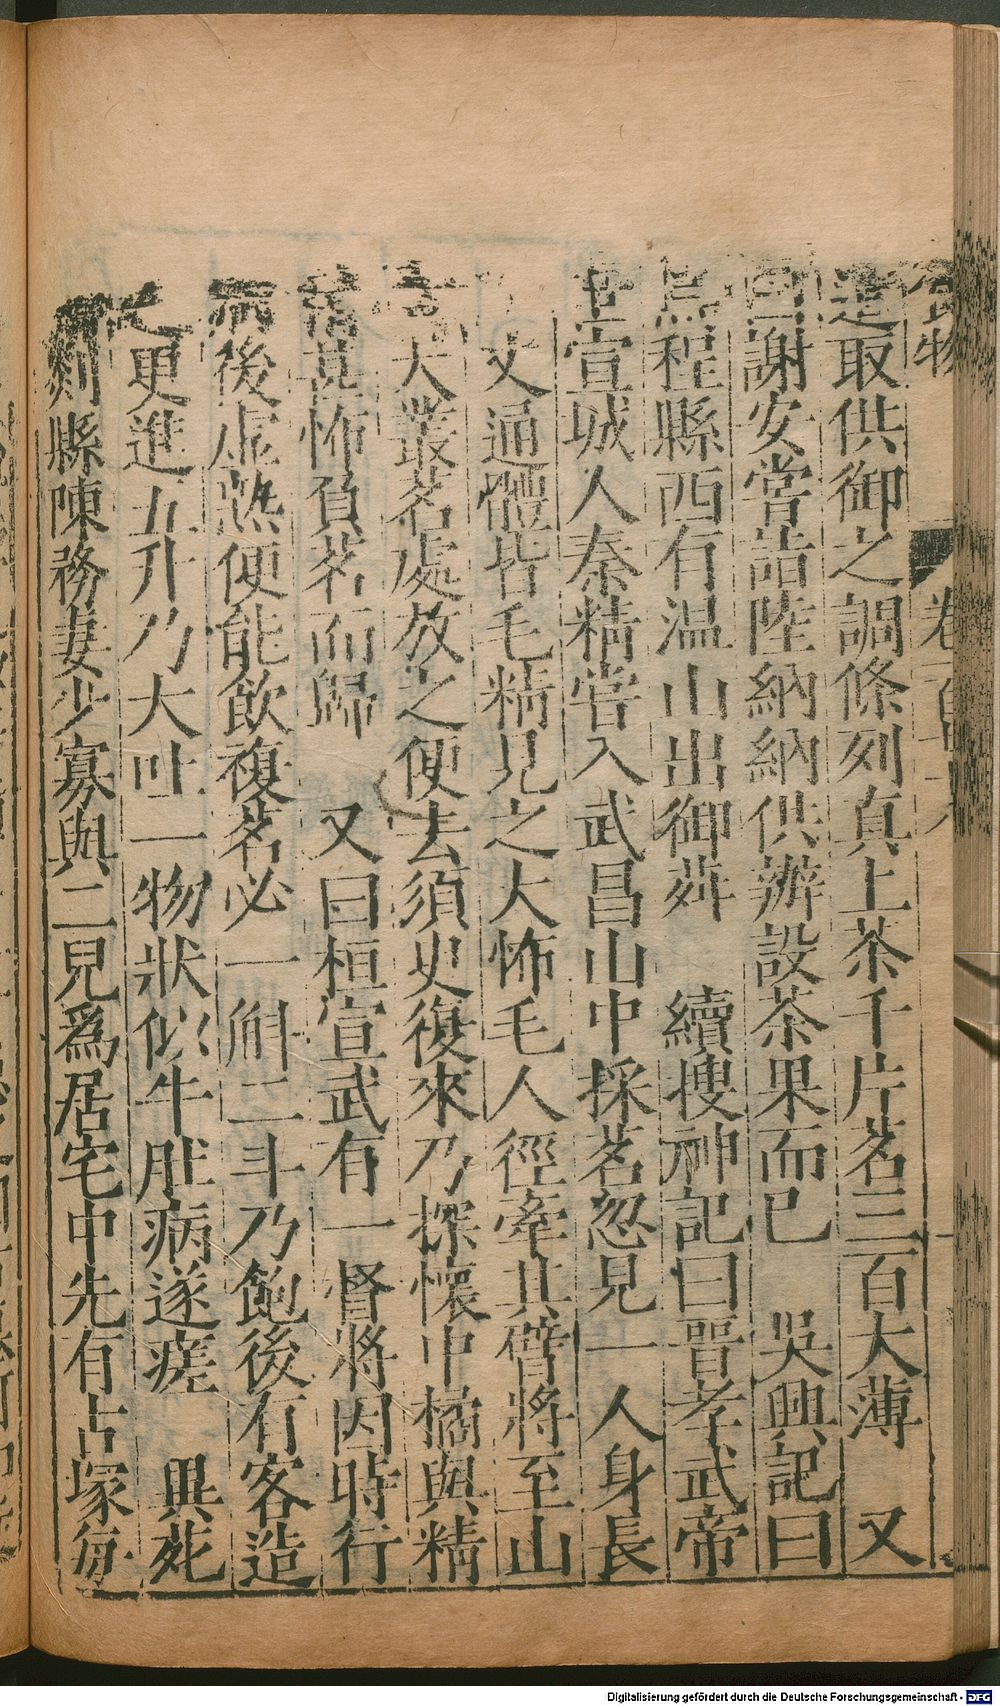 食物 卷
造取供御之調條列真上茶千片茗三百大薄 又
曰謝安嘗詣陸納納供辦設茶果而已 吳興記曰
烏程縣西有温山山出御荈 續搜神記曰晉孝武帝
世宣城人秦精嘗入武昌山中採茗忽見一人身長
丈通體皆毛精見之大怖毛人徑牽其臂將至山
大叢茗處放之便去須臾復來乃探懷中橘與精
甚怖負茗而歸 又曰桓宣武有一督將因時行
病後虛熱便能飲複茗必一斛二斗乃飽後有客造
之更進五升乃大吐一物狀似牛脏病遂瘥 異苑
剡縣陳務妻少寡與二兒爲居宅中先有古塚每
Digitalisierung gefördert durch die Deutsche Forschungsgemeinschaft - DFG